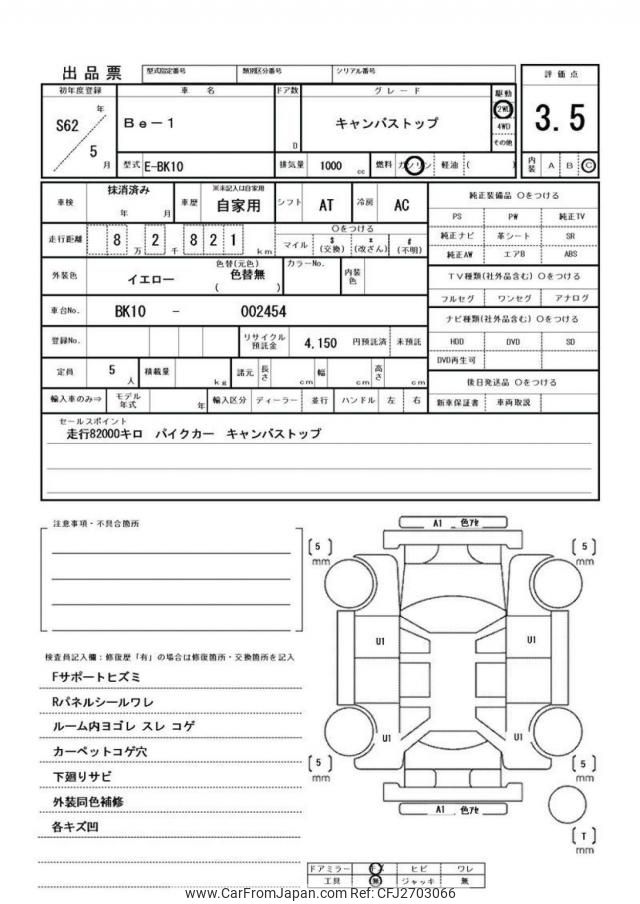 出品票 型式指定番号 類別区分番号 シリアル番号 評価点
初年度登録 車名 ドア数 グレード 駆動
S62 年 Be-1 D キャンバストップ 2WD 3.5
4WD
その他
5 月 型式 E-BK10 排気量 1000 cc 燃料 ガソリン 軽油 ( ) 内装 A B C
車検 抹消済み 年 月 車歴 ※未記入は自家用 自家用 シフト AT 冷房 AC
純正装備品 〇をつける
PS PW 純正TV
走行距離 8 万 2 千 8 2 1 km 〇をつける マイル $ (交換) * (改ざん) # (不明)
純正ナビ 革シート SR
純正AW エアB ABS
外装色 イエロー 色替(元色) 色替無 ( ) カラーNo. 内装色
TV種類(社外品含む) 〇をつける
フルセグ ワンセグ アナログ
車台No. BK10 - 002454
ナビ種類(社外品含む) 〇をつける
登録No. リサイクル預託金 4,150 円預託済 未預託
HDD DVD SD
DVD再生可
定員 5 人 積載量 kg 諸元 長さ cm 幅 cm 高さ cm
後日発送品 〇をつける
輸入車のみ⇒ モデル年式 年 輸入区分 ディーラー 並行 ハンドル 左 右
新車保証書 車両取説
セールスポイント
走行82000キロ パイクカー キャンバストップ
注意事項・不具合箇所
A1 色アセ
[5] mm
[5] mm
U1 U1
検査員記入欄:修復歴「有」の場合は修復箇所・交換箇所を記入
Fサポートヒズミ
Rパネルシールワレ
ルーム内ヨゴレ スレ コゲ
カーペットコゲ穴
下廻りサビ
外装同色補修
各キズ凹
U1 U1
[5] mm
[5] mm
A1 色アセ
[T] mm
ドアミラー ヒビ ワレ
工具 無 ジャッキ 無
www.CarFromJapan.com Ref: CFJ2703066